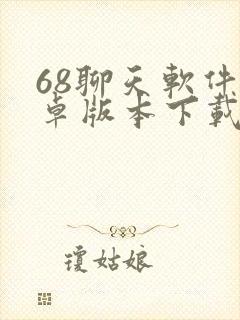 68聊天軟件
卓版本下載
瓊姑娘